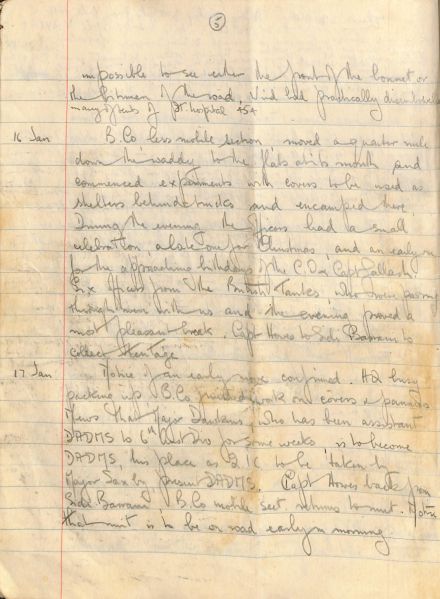 5
impossible to see either the front of the bonnet or
the bitumen of the road. Wind had practically
many of tents of hospital
16 Jan B.Co less mobile section, moved a quarter mile
down the waddy to the flats at its mouth and
commenced experiments with covers to be used as
shelters behind trucks and encamped here.
During the evening the officers had a small
celebration, a late one for Christmas, and an early one
for the approaching birthdays of the C.O & Capt
Six officers from the British Tanks who were passing
through mess with us and the evening proved a
most pleasant break. Capt Howes to Sidi Barrani to
collect
17 Jan Notice of an early move confirmed. HQ busy
packing up B.Co work on covers &
News that Major who has been assistant
DADMS to 6th Aust Div for some weeks is to become
DADMS, his place as 2 I.C to be taken by
Major Sax by present DADMS. Capt Howes back from
Sidi Barrani B.Co mobile sect returns to unit. Notice
that unit is to be on road early in morning.